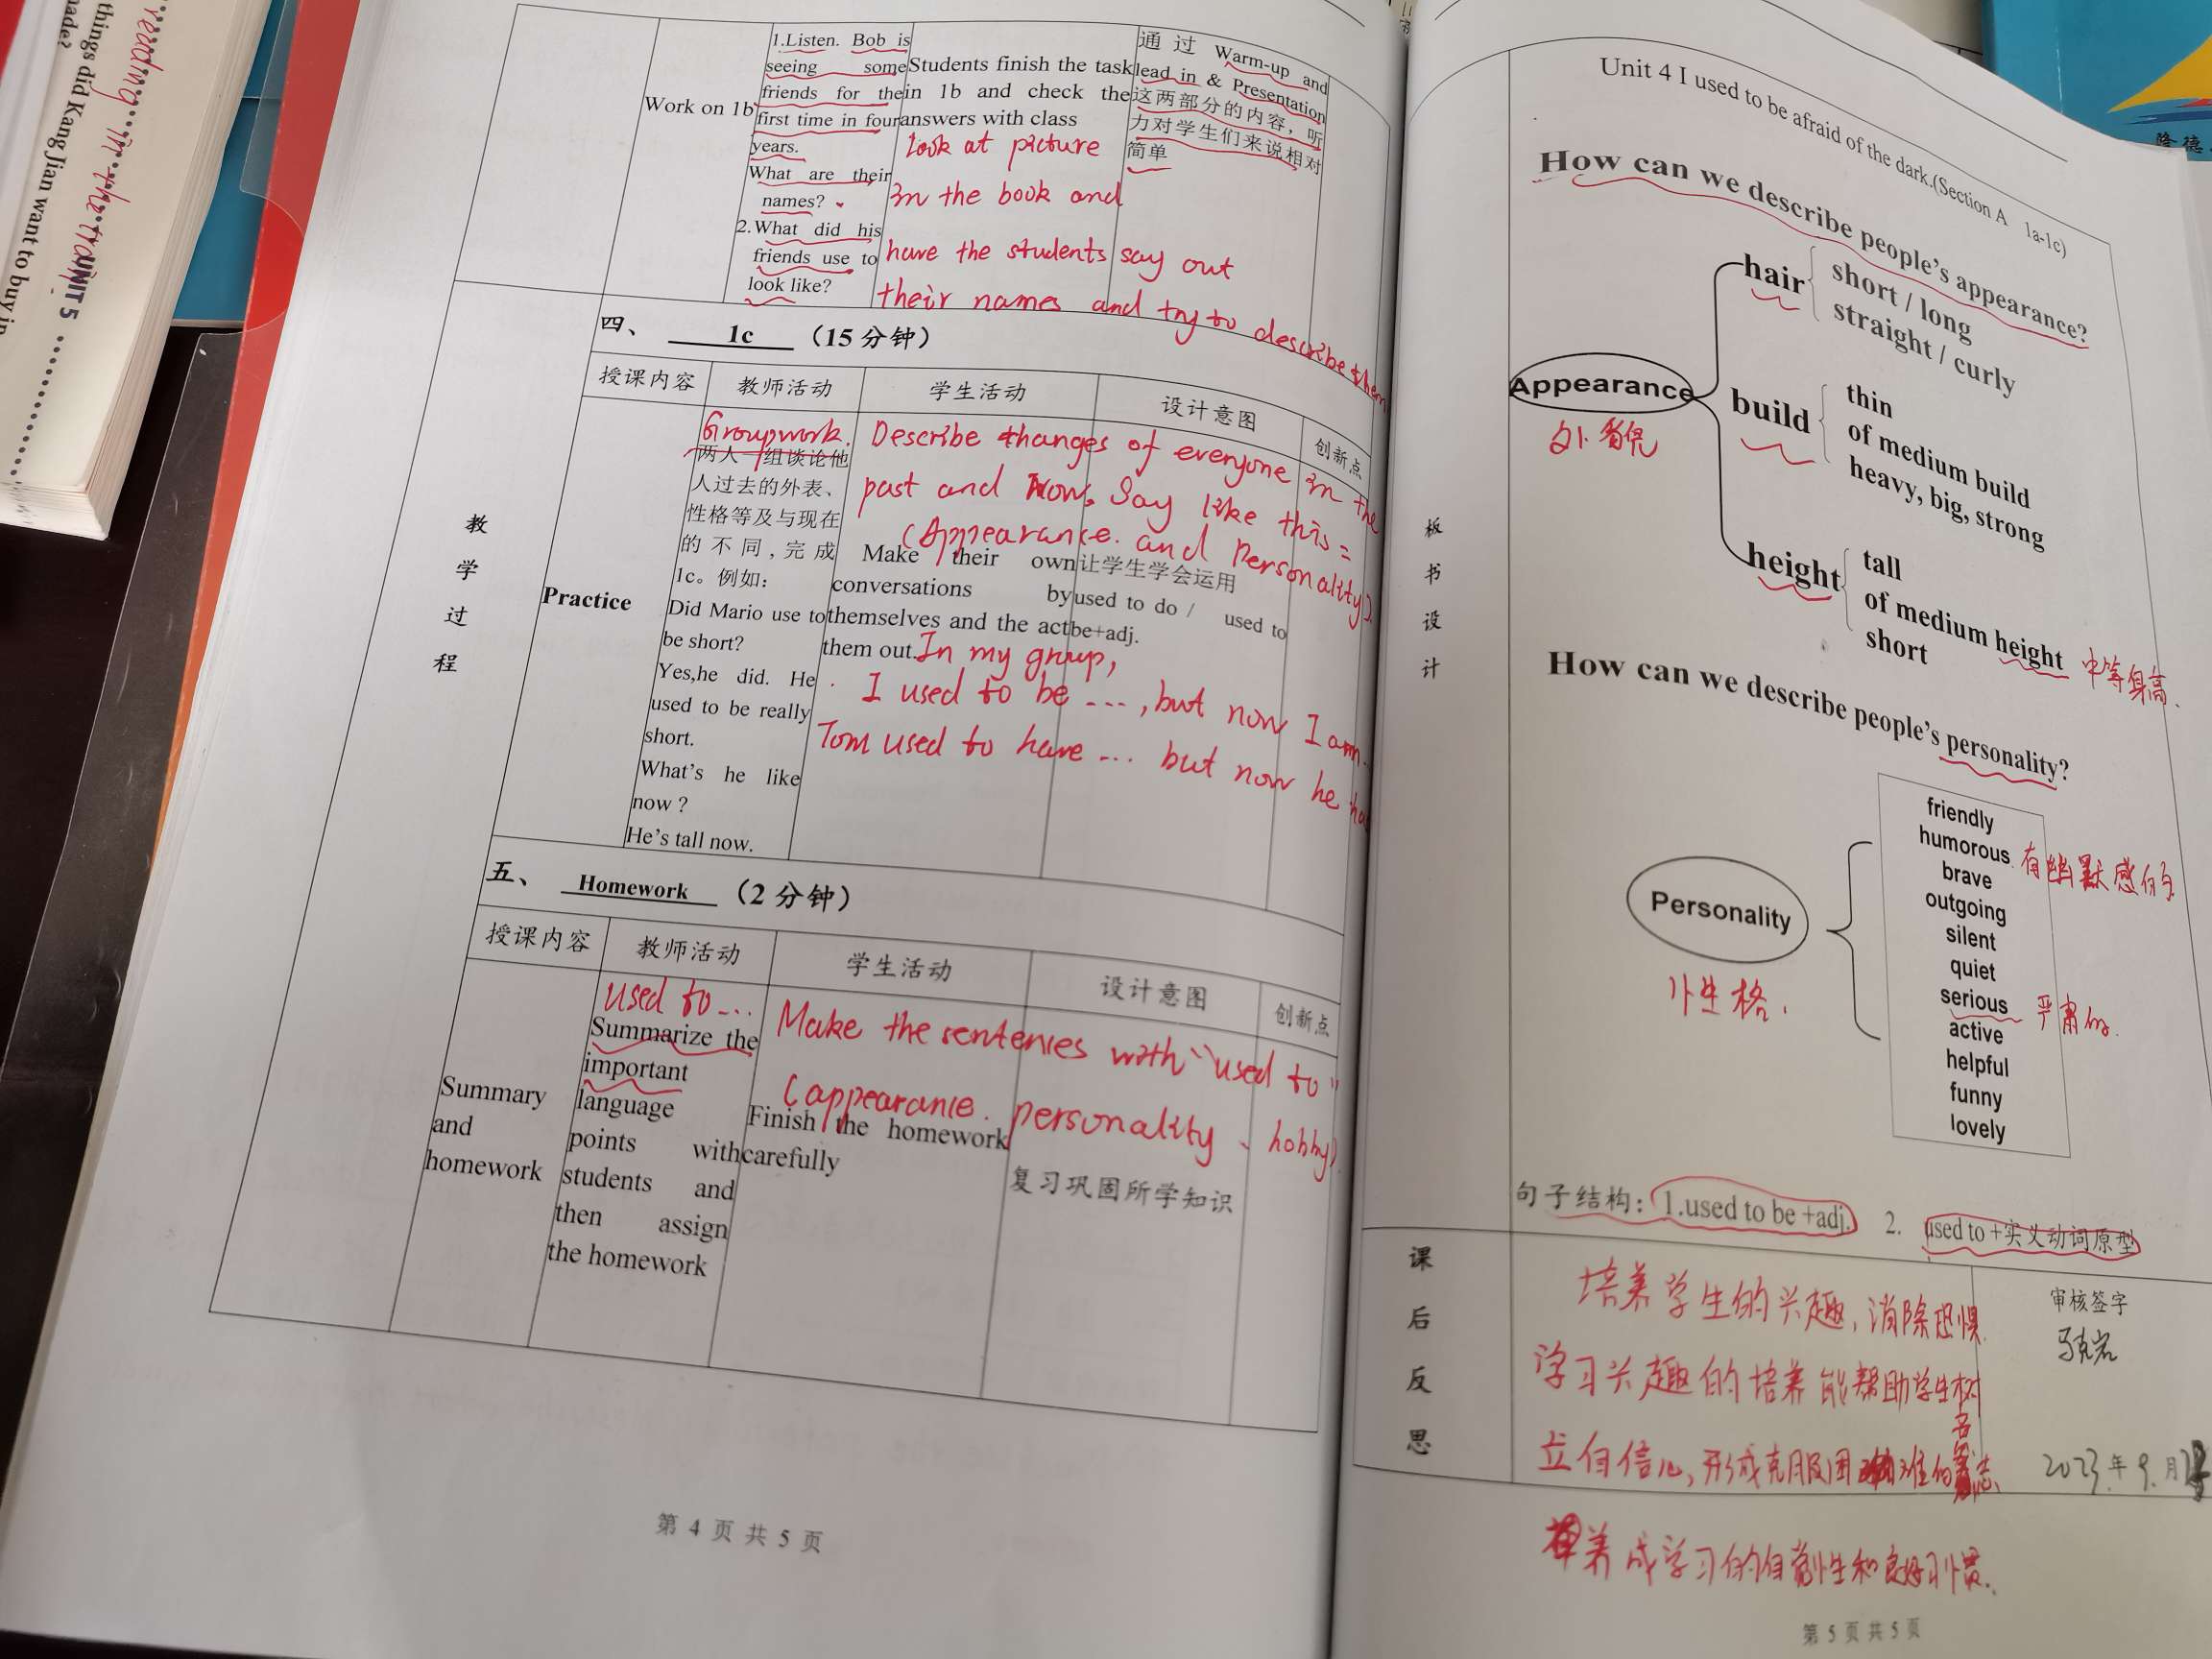 reading in the train
UNIT 5
things did Kang Jian want to buy in
made?
Work on 1b
1.Listen. Bob is
seeing some
friends for the
first time in four
years.
What are their
names?
2.What did his
friends use to
look like?
Students finish the task
in 1b and check the
answers with class
Look at picture
in the book and
have the students say out
their names and try to describe them
通过 Warm-up and
lead in & Presentation
这两部分的内容，听
力对学生们来说相对
简单
教学过程
四、 1c （15 分钟）
授课内容 教师活动 学生活动 设计意图 创新点
Practice
Groupwork.
两人一组谈论他
人过去的外表、
性格等及与现在
的不同，完成
1c。例如：
Did Mario use to
be short?
Yes,he did. He
used to be really
short.
What's he like
now ?
He's tall now.
Describe changes of everyone in the
past and now. Say like this:
(Appearance. and Personality).
Make their own
conversations by
themselves and the act
them out.
In my group,
I used to be ---, but now I am
Tom used to have --- but now he has
让学生学会运用
used to do / used to
be+adj.
五、 Homework （2 分钟）
授课内容 教师活动 学生活动 设计意图 创新点
Summary
and
homework
used to ---
Summarize the
important
language
points with
students and
then assign
the homework
Make the sentences with "used to"
(appearance. personality、hobby).
Finish the homework
carefully
复习巩固所学知识
第 4 页 共 5 页
板书设计
Unit 4 I used to be afraid of the dark.(Section A 1a-1c)
How can we describe people's appearance?
Appearance
外貌
hair
short / long
straight / curly
build
thin
of medium build
heavy, big, strong
height
tall
of medium height 中等身高.
short
How can we describe people's personality?
Personality
个性格.
friendly
humorous 有幽默感的
brave
outgoing
silent
quiet
serious 严肃的.
active
helpful
funny
lovely
句子结构：1.used to be +adj. 2. used to +实义动词原型
课后反思
培养学生的兴趣，消除恐惧
学习兴趣的培养能帮助学生树
立自信心，形成克服困难的意志
养成学习的自觉性和良好习惯.
审核签字
2023年9.月
第 5 页 共 5 页
隆德